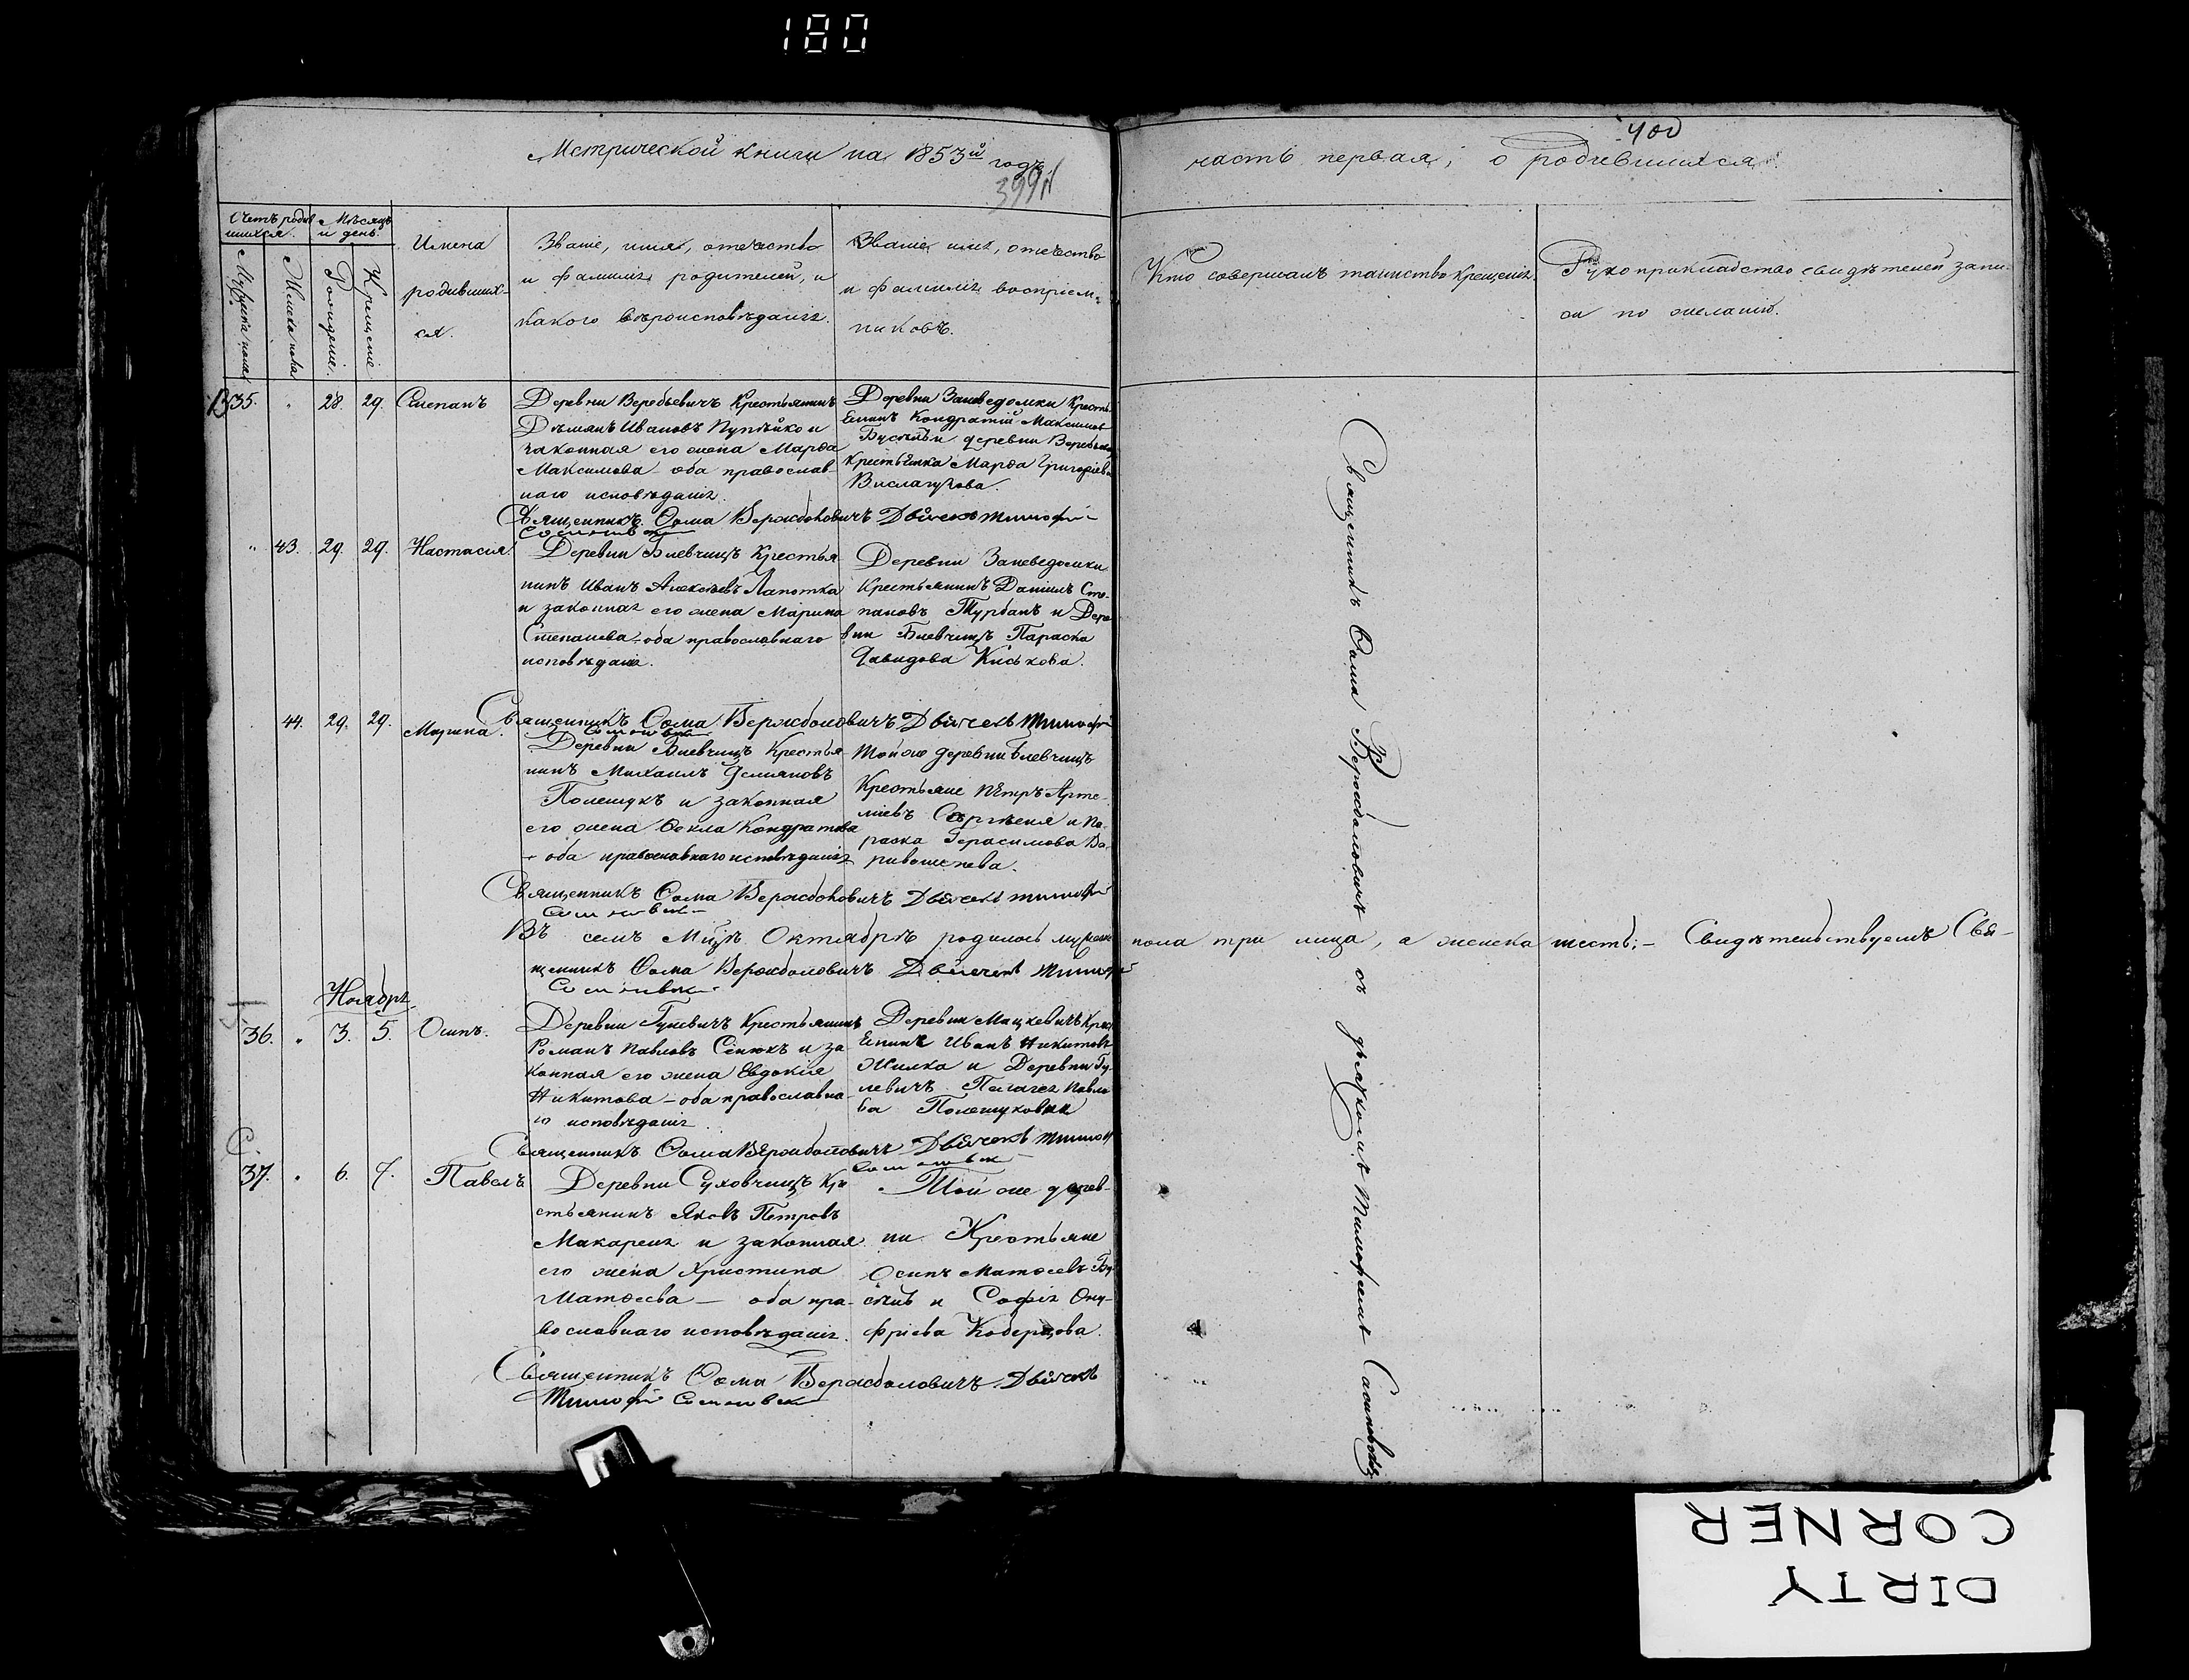 180
Метрической книги на 1853й годъ
399
400
часть первая, о родившихся.
Счетъ родив
шихся.
Мѣсяцъ
и день.
Мужеска пола
Женска пола
Рожденіе.
Крещеніе
Имена
родивших-
ся.
Званіе, имя, отечество
и фамилія родителей, и
какого вѣроисповѣданія.
Званіе, имя, отечество
и фамилія воспріем-
никовъ.
Кто совершалъ таинство крещенія.
Рукоприкладство свидѣтелей запи-
си по желанію.
35. " 28. 29. Степанъ
Деревни Веребьевичъ Крестьянинъ
Демянъ Ивановъ Пупѣйко и
законная его жена Марѳа
Максимова – оба православ-
наго исповѣданія.
Деревни Заневедомки Кресть
янинъ Кондратій Максимов
и деревни
крестьянка Марѳа Григоріева
Вислагузова.
Священникъ Ѳома Вержболовичъ Дьячекъ Тимофѣй
" 43. 29. 29. Настасія.
Деревни Блевчицъ Крестья
нинъ Иванъ Алексѣевъ Лапотка
и законная его жена Марина
Степанова – оба православнаго
исповѣданія.
Деревни Заневедомки
Крестьянинъ Даніилъ Сте-
пановъ Турбанъ и Дере
вни Блевчицъ Параска
Давидова Киськова.
Священникъ Ѳома Вержболовичъ Дьячекъ Тимофѣй
44. 29. 29. Марина.
Деревни Блевчицъ Крестья
нинъ Михаилъ Демяновъ
Полещукъ и законная
его жена Ѳекла Кондратова
– оба православнаго исповѣданія
Той же деревни Блевчицъ
Крестьяне Пётръ Арте-
міевъ Сергѣеня и Па-
раска Герасимова

Священникъ Ѳома Вержболовичъ Дьячекъ Тимофѣй
Въ семъ Мцѣ Октябрѣ родилось мужеска пола три лица, а женска шесть; – Свидѣтельствуемъ Свя-
щенникъ Ѳома Вержболовичъ Дьячекъ Тимофѣй
Ноябрь
36. " 3. 5. Осипъ.
Деревни Гулевичъ Крестьянинъ
Романъ Павловъ Сенюкъ и за
конная его жена Евдокія
Никитова – оба православна-
го исповѣданія.
Деревни Мацкевичъ Крест
янинъ Иванъ Никитовъ
Жилка и Деревни Гу
левичъ Пелагея Павло
ва Полещукова
Священникъ Ѳома Вержболовичъ Дьячекъ Тимофѣй
37. " 6. 7. Павелъ
Деревни Суховчицъ Кре
стьянинъ Яковъ Петровъ
Макареня и законная
его жена Христина
Матѳеева – оба пра-
вославнаго исповѣданія.
Той же дерев-
ни Крестьяне
Осипъ Матѳеевъ
и Софія Ону-
фріева Коберцова.
Священникъ Ѳома Вержболовичъ Дьячекъ
Тимофѣй
Священникъ Ѳома Вержболовичъ съ дьячкомъ Тимофеемъ
DIRTY
CORNER